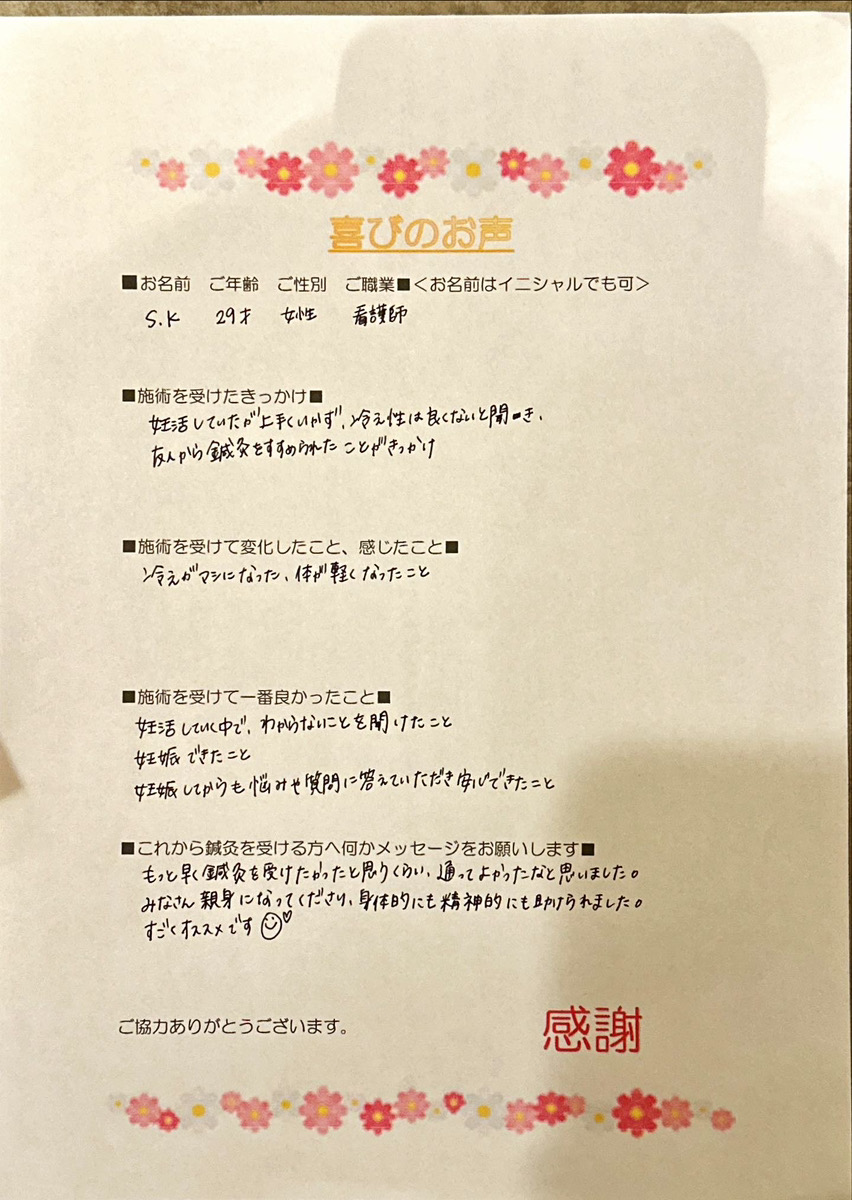 喜びのお声
■お名前 ご年齢 ご性別 ご職業■＜お名前はイニシャルでも可＞
S.K 29才 女性 看護師
■施術を受けたきっかけ■
妊活していたが上手くいかず、冷え性は良くないと聞き、
友人から鍼灸をすすめられたことがきっかけ
■施術を受けて変化したこと、感じたこと■
冷えがマシになった、体が軽くなったこと
■施術を受けて一番良かったこと■
妊活していく中で、わからないことを聞けたこと
妊娠できたこと
妊娠してからも悩みや質問に答えていただき安心できたこと
■これから鍼灸を受ける方へ何かメッセージをお願いします■
もっと早く鍼灸を受けたかったと思うくらい、通ってよかったなと思いました。
みなさん親身になってくださり、身体的にも精神的にも助けられました。
すごくオススメです
ご協力ありがとうございます。
感謝